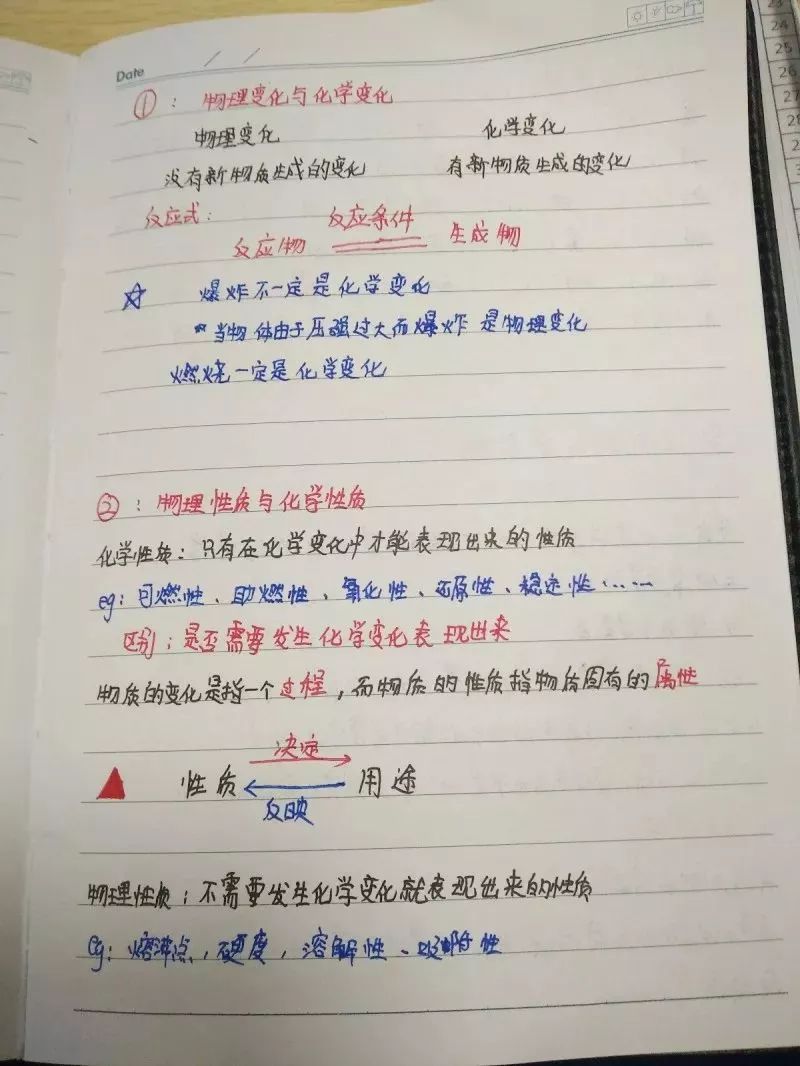 Date / /
①：物理变化与化学变化
物理变化 化学变化
没有新物质生成的变化 有新物质生成的变化
反应式：
反应物 反应条件 生成物
☆ 爆炸不一定是化学变化
*当物体由于压强过大而爆炸是物理变化
燃烧一定是化学变化
②：物理性质与化学性质
化学性质：只有在化学变化中才能表现出来的性质
eg：可燃性、助燃性、氧化性、还原性、稳定性……
区别：是否需要发生化学变化表现出来
物质的变化是指一个过程，而物质的性质指物质固有的属性
决定
▲ 性质 用途
反映
物理性质：不需要发生化学变化就表现出来的性质
eg：熔沸点，硬度，溶解性、吸附性
23
24
25
26
27
28